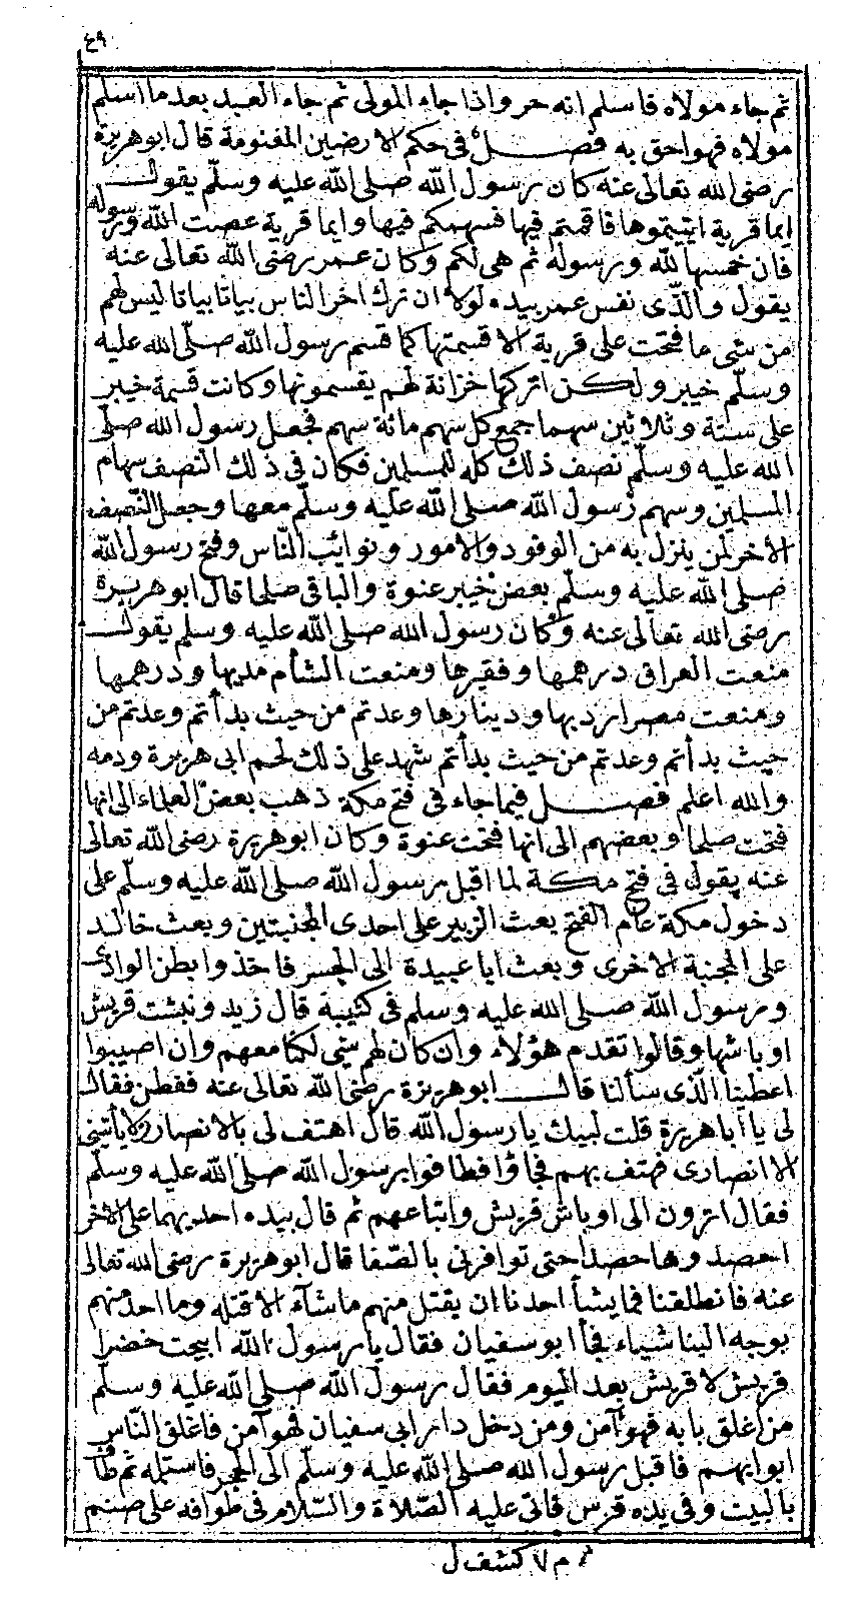 ٤٩
ثم جاء مولاه فاسلم انه حر واذا جاء المولى ثم جاء العبد بعد ما اسلم
مولاه فهو احق به فصل في حكم الارضين المغنومة قال ابوهريرة
رضى الله تعالى عنه كان رسول الله صلى الله عليه وسلم يقول
ايما قرية اتيتموها فاقمتم فيها فسهمكم فيها وايما قرية عصت الله ورسوله
فان خمسها لله ورسوله ثم هى لكم وكان عمر رضى الله تعالى عنه
يقول والذى نفس عمر بيده لولا ان ترك اخر الناس بيانا بيانا ليس لهم
من شى ما فتحت على قرية الا قسمتها كما قسم رسول الله صلى الله عليه
وسلم خيبر ولكن اتركها خزانة لهم يقسمونها وكانت قسمة خيبر
على ستة وثلاثين سهما جمع كل سهم مائة سهم فجعل رسول الله صلى
الله عليه وسلم نصف ذلك كله للمسلمين فكان فى ذلك النصف سهام
المسلمين وسهم رسول الله صلى الله عليه وسلم معها وجعل النصف
الاخر لمن ينزل به من الوفود والامور ونوايب الناس وفتح رسول الله
صلى الله عليه وسلم بعض خيبر عنوة والباقى صلحا قال ابوهريرة
رضى الله تعالى عنه وكان رسول الله صلى الله عليه وسلم يقول
منعت العراق درهمها وفقيرها ومنعت الشأم مديها ودرهمها
ومنعت مصر اردبها ودينارها وعدتم من حيث بدأتم وعدتم من
حيث بدأتم وعدتم من حيث بدأتم شهد على ذلك لحم ابى هريرة ودمه
والله اعلم فصل فيما جاء فى فتح مكة ذهب بعض العلماء الى انها
فتحت صلحا وبعضهم الى انها فتحت عنوة وكان ابوهريرة رضى الله تعالى
عنه يقول فى فتح مكة لما اقبل رسول الله صلى الله عليه وسلم على
دخول مكة عام الفتح بعث الزبير على احدى المجنبتين وبعث خالد
على المجنبة الاخرى وبعث ابا عبيدة الى الجسر فاخذوا بطن الوادى
ورسول الله صلى الله عليه وسلم فى كتيبة قال زيد ونبشت قريش
اوباشها وقالوا تقدم هؤلاء وان كان لهم شى لكنا معهم وان اصيبوا
اعطينا الذى سألنا قال ابوهريرة رضى الله تعالى عنه ففطن فقال
لى يا اباهريرة قلت لبيك يا رسول الله قال اهتف لى بالانصار ولا يأتينى
الا انصارى فهتف بهم فجاؤا فطافوا برسول الله صلى الله عليه وسلم
فقال اترون الى اوباش قريش واتباعهم ثم قال بيده احديهما على الاخر
احصدوها حصدا حتى توافونى بالصفا قال ابوهريرة رضى الله تعالى
عنه فانطلقنا فما يشأ احدنا ان يقتل منهم ماشاء الا قتله وما احد منهم
يوجه الينا شياء فجأ ابو سفيان فقال يا رسول الله ابيحت خضرا
قريش لا قريش بعد اليوم فقال رسول الله صلى الله عليه وسلم
من اغلق بابه فهو آمن ومن دخل دار ابى سفيان فهو آمن فاغلق الناس
ابوابهم فاقبل رسول الله صلى الله عليه وسلم الى الحجر فاستلمه ثم طاف
بالبيت وفى يده قوس فاتى عليه الصلاة والسلام فى طوافه على صنم
م ٧ كشف ل